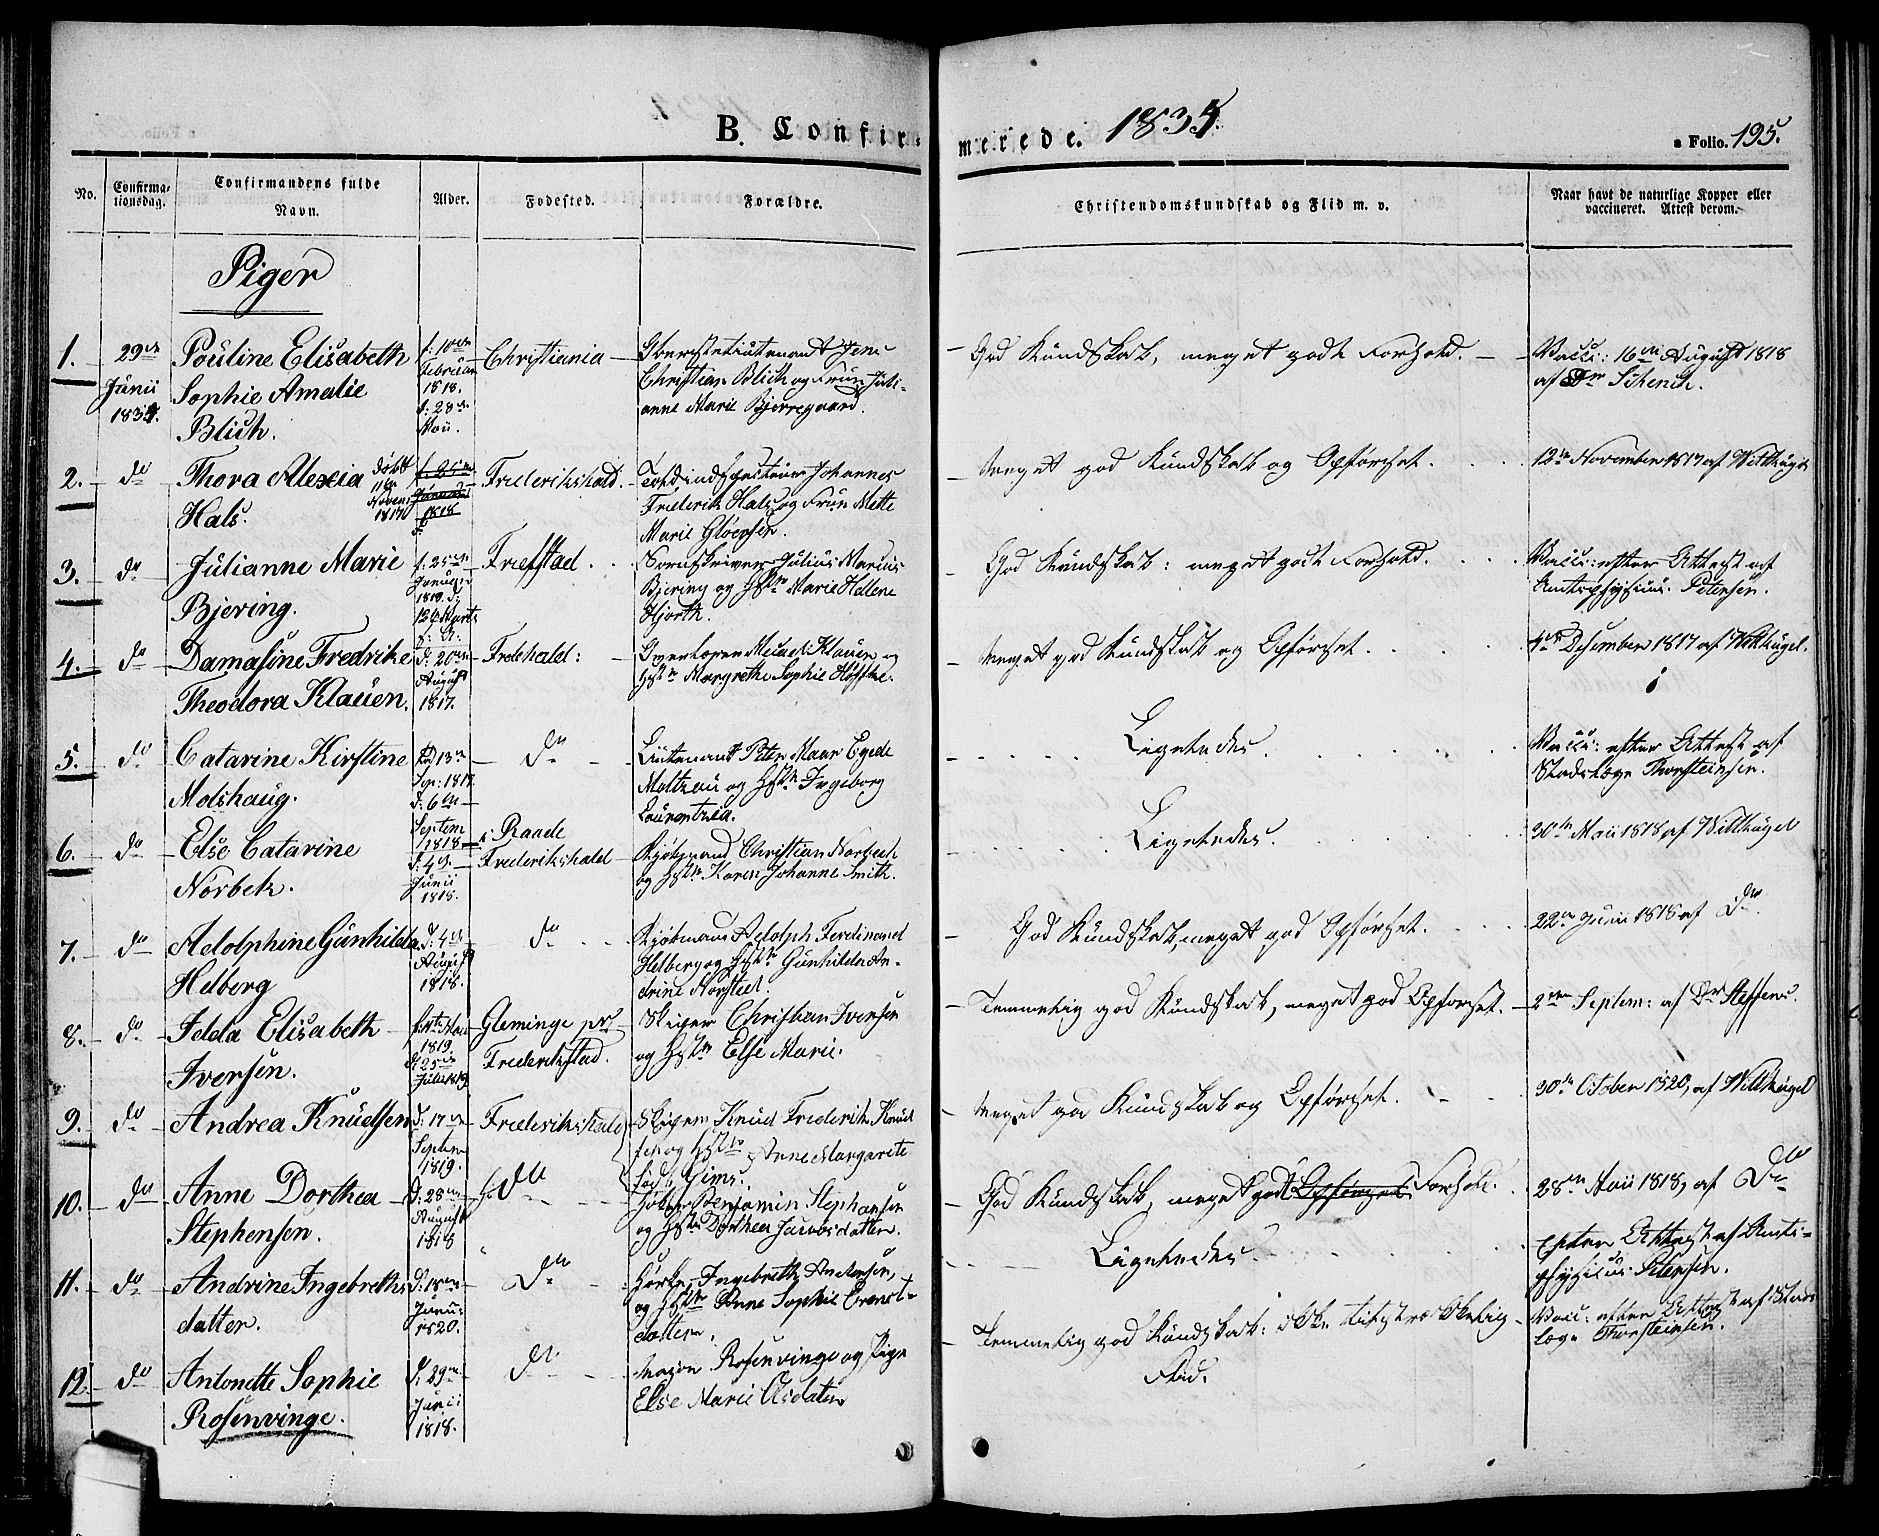 B. Confir-
merede. 1834.
a Folio. 195.
No.
Confirma-
tionsdag.
Confirmandens fulde
Navn.
Alder.
Fodested.
Forældre.
Christendomskundskab og Flid m. v.
Naar havt de naturlige Kopper eller
vaccineret. Attest derom.
Piger
1.
29de
Junii
1834.
Pouline Elisabeth
Sophie Amalie
Blich.
f: 10de
Februar
1818.
d: 28de
Christiania
Oberstleiutenant Jens
Christian Blich og Frue Juli-
anne Marie Bjerregaard.
God Kundskab, meget godt Forhold.
Vacci: 16de August 1818
af Dr Schenck.
2.
do
Thora Alexia
Hals.
døbt
11te
Novem
1817
f. 25de
Januar
1818
Frederikshald.
Toldinspecteur Johannes
Frederik Hals og Frue Mette
Marie Gløersen.
Meget god Kundskab og Opførsel.
12te November 1817 af Witthügel
3.
do
Julianne Marie
Bjering.
f. 25de
Januar
1819. d:
12te Marts
Fredstad.
Sorenskriver Julius Marius
Bjering og Hstr Marie Hellene
Hjorth.
God Kundskab: meget godt Forhold.
Vacci: efter Attest af
Amtsphysicus Petersen.
4.
do
Damasine Fredrike
Theodora Klauen.
d: 20de
August
1817.
Fredhald:
og
Hstr Margrethe Sophie Høffke.
Meget god Kundskab og Opførsel.
4de Desember 1817 af Witthügel.
5.
do
Catarine Kirstine
Molshaug.
13de
Sep: 1818
d: 6te
Septem
1818
do
Liutenant Peter Maar Egede
Moltzau og Hstr Ingeborg
Laurentzia.
Ligeledes.
Vacci: efter Attest af
Stadslæge Thorsteinsen.
6.
do
Else Catarine
Norbek.
d: 4de
Junii
1818.
i Raade
Frederikshald
Kjøbmand Christian Norbech
og Hstr Karen Johanne Smith.
Ligeledes.
30te Maii 1818 af Witthügel
7.
do
Adolphine Gunhilda
Helberg
d: 4de
August
1818.
do
Kjøbmand Adolph Ferdinand
Helberg og Hstr Gunhilda An-
drine Norsted.
God Kundskab, meget god Opførsel.
22de Junii 1818 af Do.
8.
do
Jelda Elisabeth
Iversen.
1819
d: 25de
Julii 1819
Gleminge pr
Frederikstad.
Skiper Christian Iversen
og Hstr Else Marie.
Temmelig god Kundskab, meget god Opførsel.
2den Septem: af Dr Steffens.
9.
do
Andrea Knudsen
d: 17de
Septem
1819.
Frederikshald
Skipper Knud Frederik Knud
sen og Hstr Anne Margarete
fød Gims.
Meget god Kundskab og Opførsel.
30te October 1820, af Witthügel
10.
do
Anne Dorthea
Stephensen.
d: 28de
August
1818
do
Benjamin Stephansen
og Hstr Dorthea Jacobsdatter.
God Kundskab, meget godt Opførsel Forhold.
28de Maii 1818, af Do
11.
do
Andrine Ingebreths
datter.
d: 18de
Janu:
1820.
Do
Ingebreth Andersen,
og Hstr Anne Sophie Ernst-
datter.
Ligeledes.
Efter Attest af Amts-
physicus Petersen.
12.
do
Antonette Sophie
Rosenvinge.
d: 29de
Junii
1818.
do
Major Rosenvinge og Pige
Else Marie Olsdatter
Temmelig god Kundskab: ikke tilstrækkelig
Flid.
Vacci: efter Attest af Stads
læge Thorsteinsen.